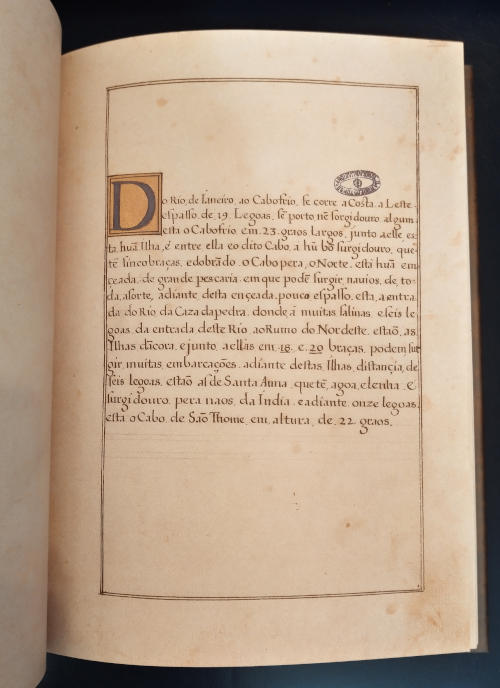 Do Rio, de Janeiro, ao Cabofrio, se corre, a Costa, a Leste.
espasso, de 19. Legoas, se porto, nẽ sorgidouro, algum.
esta o Cabofrio em. 23. graos largos, junto aelle, es-
ta, huã Ilha, e entre ella eo dito Cabo, a hũ bõ surgidouro, que
tẽ sincobraças, e dobrãdo, o Cabo pera, o Norte, esta huã en
çeada, de grande pescaria, em que podẽ surgir, navios, de, to-
da, a sorte, adiante desta ençeada, pouco espasso, esta, a entra
da do Rio da Caza da pedra, donde, á muitas salinas, e seis le
goas, da entrada deste Rio ao Rumo do Nordeste, estaõ, as,
Ilhas dãcora, e junto, aellas em. 18. e. 20 braças, podem sur
gir, muitas, embarcações, adiante destas, Ilhas, distançia, de
seis legoas, estaõ as de Santa Anna, que tẽ, agoa, e lenha e
surgidouro, pera naos, da India, e adiante, onze legoas,
esta o Cabo, de Saõ Thome, em, altura, de, 22, graos.